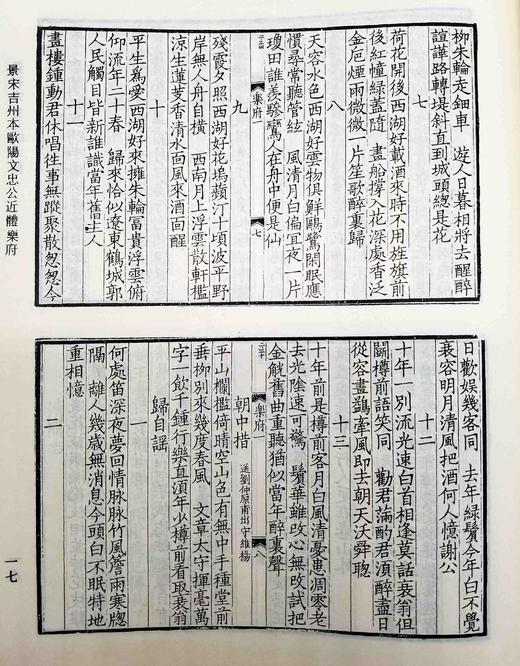 柳朱輪走鈿車　遊人日暮相將去醒醉
諠譁路轉堤斜直到城頭總是花
七
荷花開後西湖好載酒來時不用旌旗前
後紅幢綠蓋隨　畫船撐入花深處香泛
金卮煙雨微微一片笙歌醉裏歸
八
天容水色西湖好雲物俱鮮鷗鷺閑眠應
慣尋常聽管絃　風清月白偏宜夜一片
瓊田誰羨驂鸞人在舟中便是仙
樂府一　七
九
殘霞夕照西湖好花塢蘋汀十頃波平野
岸無人舟自橫　西南月上浮雲散軒檻
涼生蓮芰香清水面風來酒面醒
十
平生為愛西湖好來擁朱輪富貴浮雲俯
仰流年二十春　歸來恰似遼東鶴城郭
人民觸目皆新誰識當年舊主人
十一
畫樓鍾動君休唱往事無蹤聚散怱怱今
日歡娛幾客同　去年綠鬢今年白不覺
衰容明月清風把酒何人憶謝公
十二
十年一別流光速白首相逢莫話衰翁但
鬭樽前語笑同　勸君滿酌君湏醉盡日
從容畫鷁牽風即去朝天沃舜聰
十三
十年前是樽前客月白風清憂患凋零老
去光陰速可驚　鬢華雖改心無改試把
金觥舊曲重聽猶似當年醉裏聲
樂府一　八
朝中措　送劉仲原甫出守維揚
平山欄檻倚晴空山色有無中手種堂前
垂柳別來幾度春風　文章太守揮毫萬
字一飲千鍾行樂直湏年少樽前看取衰翁
歸自謠
一
何處笛深夜夢回情脉脉竹風簷雨寒牎
隔　離人幾歲無消息今頭白不眠特地
重相憶
二
景宋吉州本歐陽文忠公近體樂府
一七